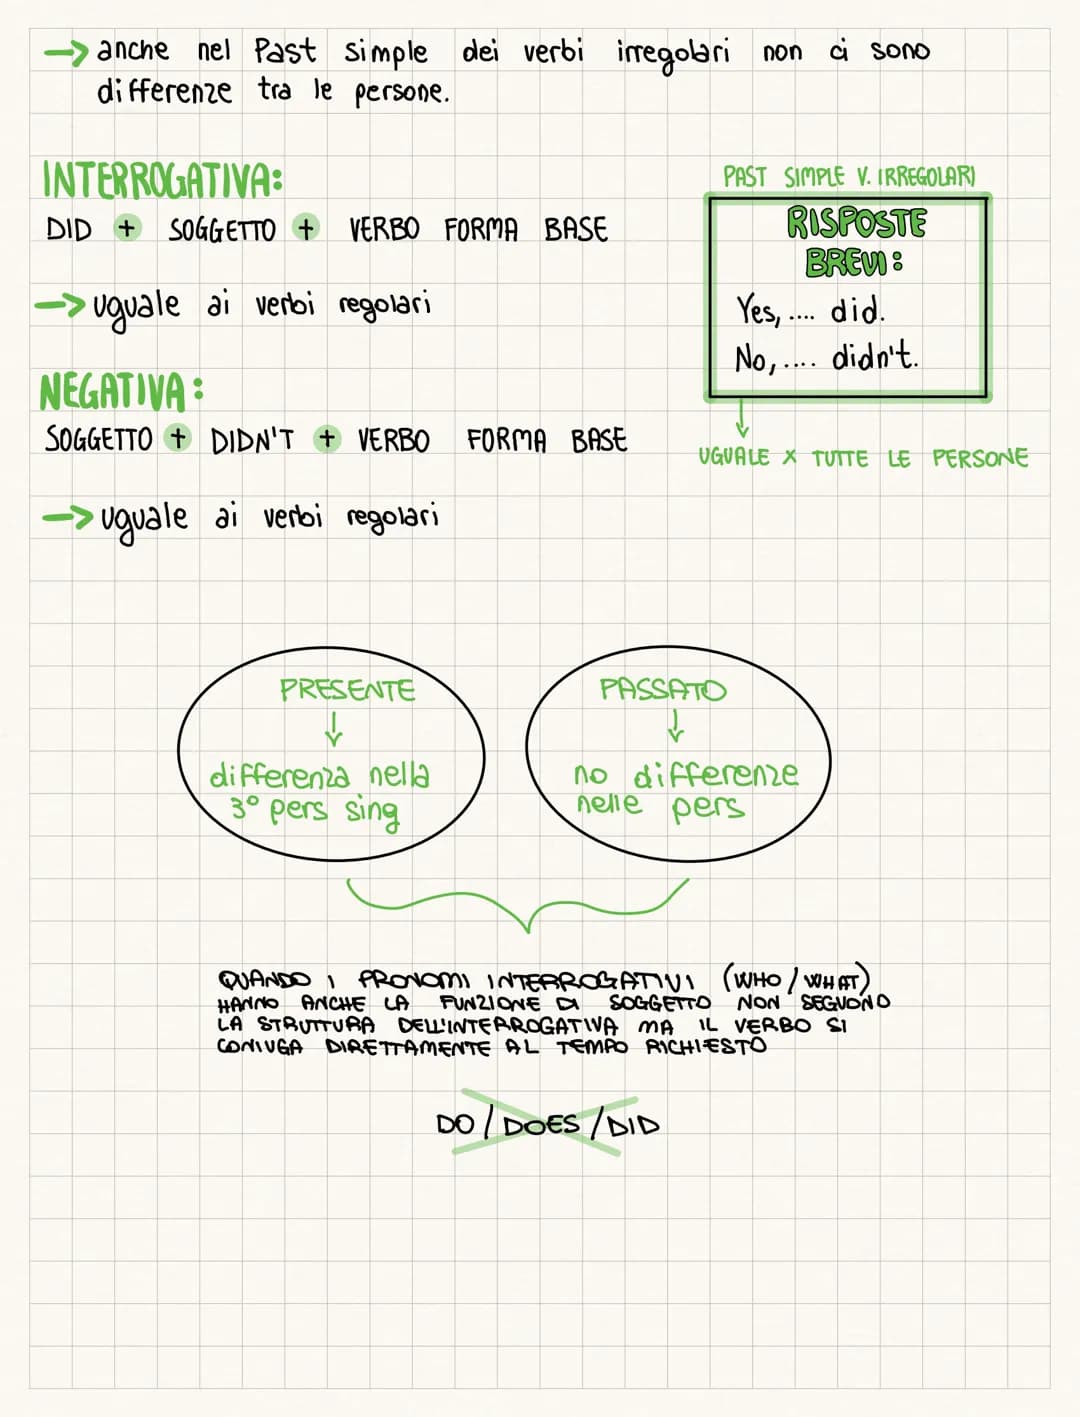 → anche nel Past simple dei verbi irregolari non ci sono
differenze tra le persone.
INTERROGATIVA:
DID + SOGGETTO + VERBO FORMA BASE
→ uguale ai verbi regolari
NEGATIVA:
SOGGETTO + DIDN'T + VERBO FORMA BASE
→ uguale ai verbi regolari
PAST SIMPLE V. IRREGOLARI
RISPOSTE
BREVI:
Yes, .... did.
No, .... didn't.
↓
UGUALE X TUTTE LE PERSONE
PRESENTE
↓
differenza nella
3° pers sing
PASSATO
↓
no differenze
nelle pers
QUANDO I PRONOMI INTERROGATIVI (WHO / WHAT)
HANNO ANCHE LA FUNZIONE DI SOGGETTO NON SEGUONO
LA STRUTTURA DELL'INTERROGATIVA MA IL VERBO SI
CONIUGA DIRETTAMENTE AL TEMPO RICHIESTO
DO / DOES / DID